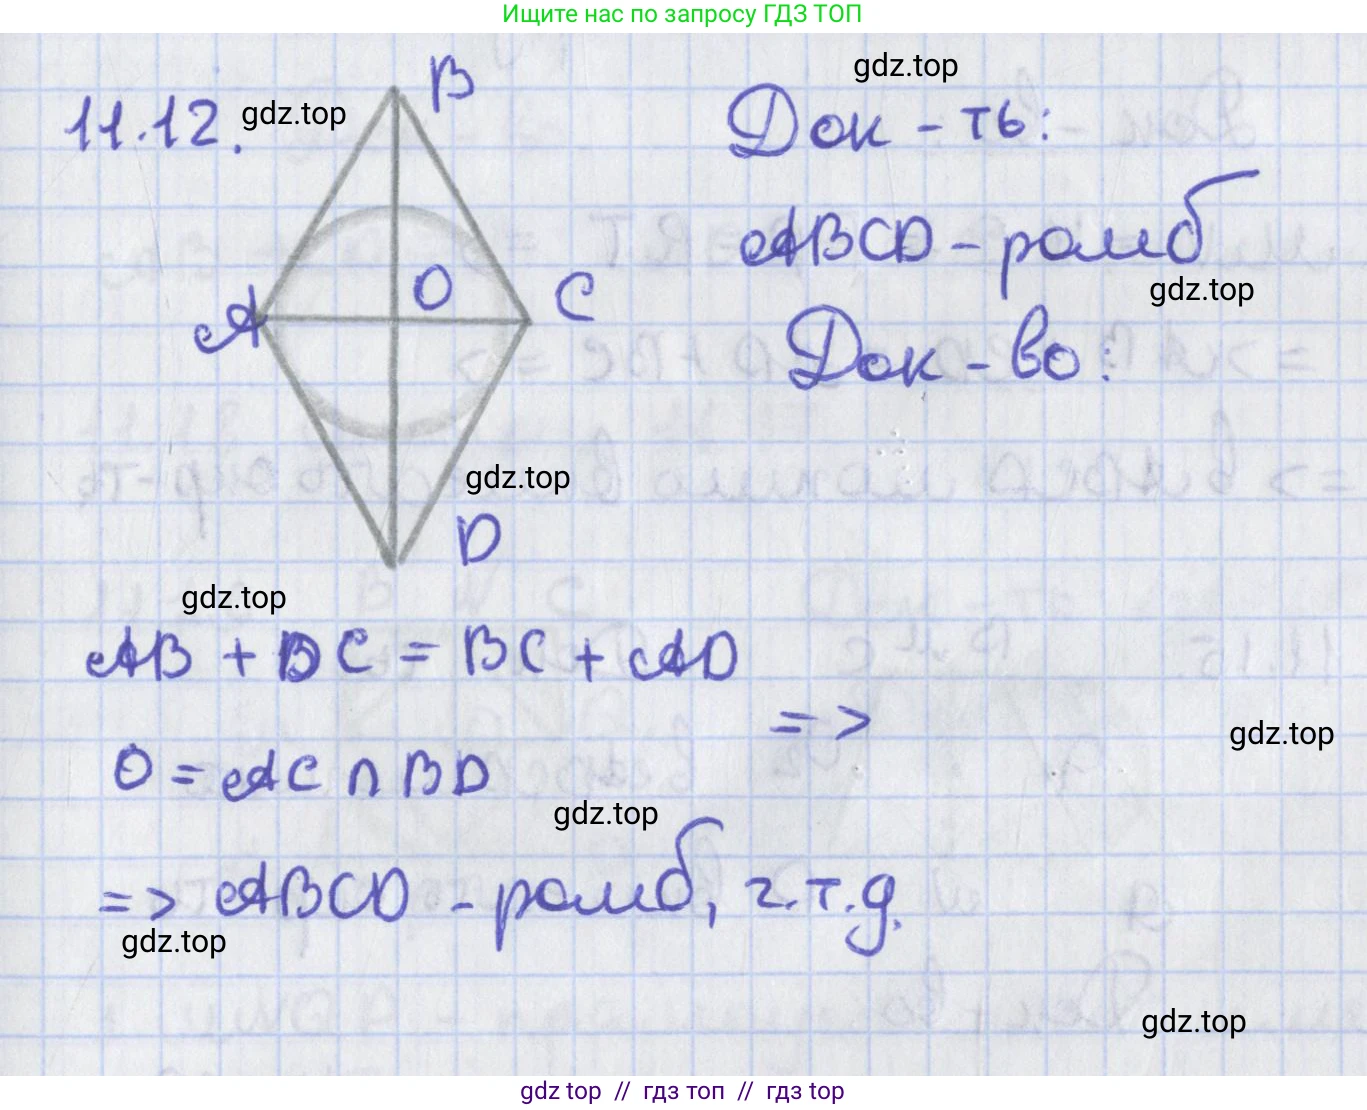 Ищите нас по запросу ГДЗ ТОП
11.12.
gdz.top
B
gdz.top
Док-ть:
ABCD - ромб
gdz.top
O
C
A
Док-во:
gdz.top
D
gdz.top
AB + DC = BC + AD
=>
gdz.top
O = AC ∩ BD
gdz.top
=> ABCD - ромб, ч.т.д.
gdz.top
gdz.top
gdz top // гдз топ // гдз top